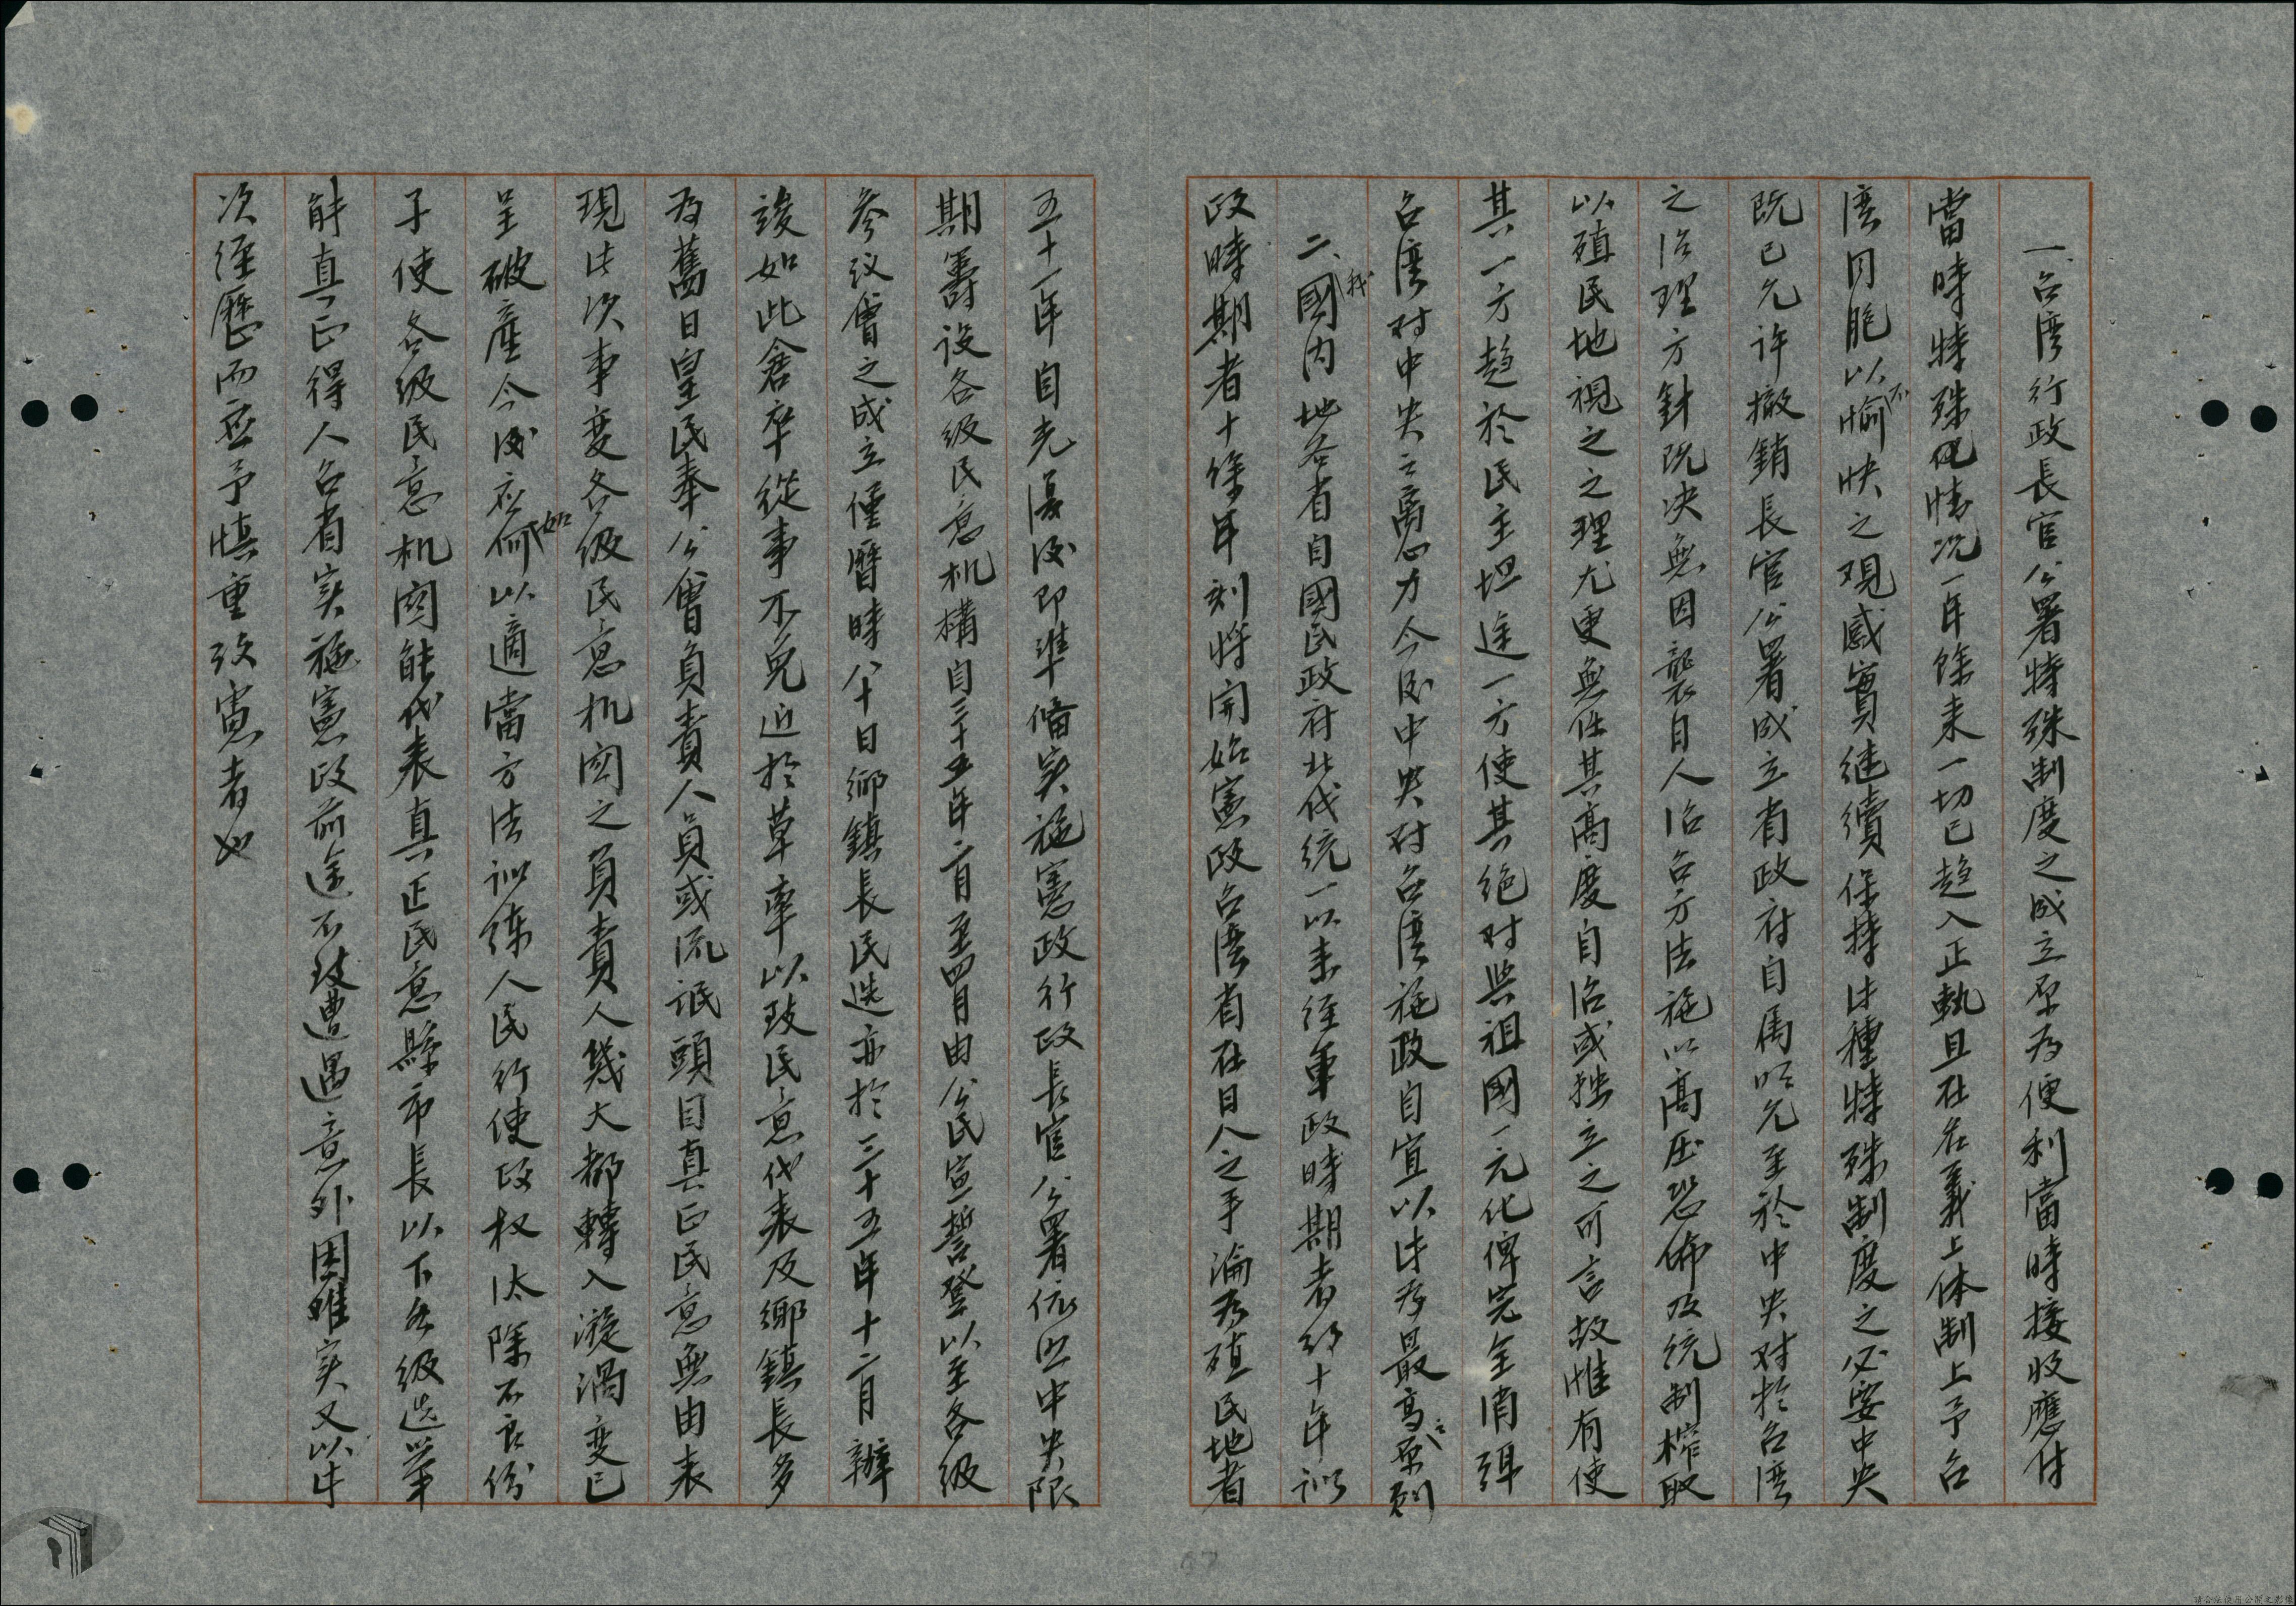 一、台湾行政長官公署特殊制度之成立原为便利當時接收應付
當時特殊情况一年餘来一切已趋入正軌且在名義上体制上予台
湾同胞以不愉快之观感實無継續保持此種特殊制度之必要中央
既已允许撤銷長官公署成立省政府自属明允至於中央对於台湾
之治理方針既决無因襲日人治台方法施以高压恐怖及统制榨取
以殖民地視之之理尤更無任其高度自治或独立之可言故惟有使
其一方趋於民主坦途一方使其绝对與祖國一元化俾完全消弭
台湾对中央之离心力今后中央对台湾施政自宜以此为最高之原则
二、我國内地各省自國民政府北伐统一以来经軍政時期者约十年訓
政時期者十餘年刻将開始憲政台湾省在日人之手淪为殖民地者
五十一年自光復后即準備実施憲政行政長官公署依照中央限
期籌设各级民意机構自三十五年二月至四月由公民宣誓登以至各级
參议會之成立僅曆時八十日鄉鎮長民选亦於三十五年十二月辦
竣如此倉卒從事不免近於草率以致民意代表及鄉鎮長多
为舊日皇民奉公會負責人員或流氓頭目真正民意無由表
現此次事变各级民意机関之負責人幾大都轉入漩渦变已
呈破產今后应如何以適當方法训练人民行使政权汰除不良份
子使各级民意机関能代表真正民意縣市長以下各级选举
能真正得人台省実施憲政前途不致遭遇意外困难実又以此
次经歷而应予慎重攷慮者也
67